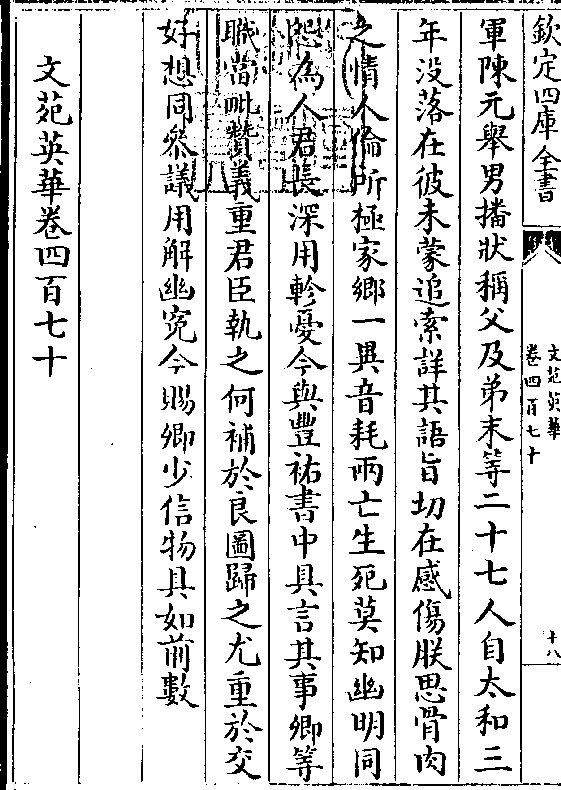 欽定四庫全書
文苑英華
卷四百七十
十八
軍陳元舉男播狀稱父及弟末等二十七人自太和三
年没落在彼未蒙追索詳其語旨切在感傷朕思骨肉
之情人倫所極家鄉一異音耗兩亡生死莫知幽明同
怨為人君長深用軫憂今與豐祐書中具言其事卿等
職當毗贊義重君臣執之何補於良圖歸之尤重於交
好想同參議用解幽寃今賜卿少信物具如前數
文苑英華卷四百七十